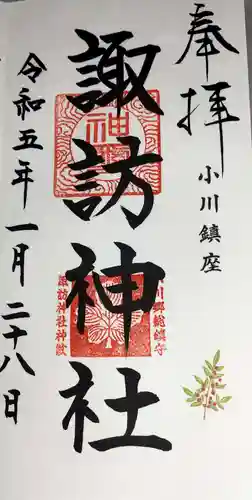 奉拝
小川鎮座
諏訪神社
諏訪神社神紋
令和五年一月二十八日